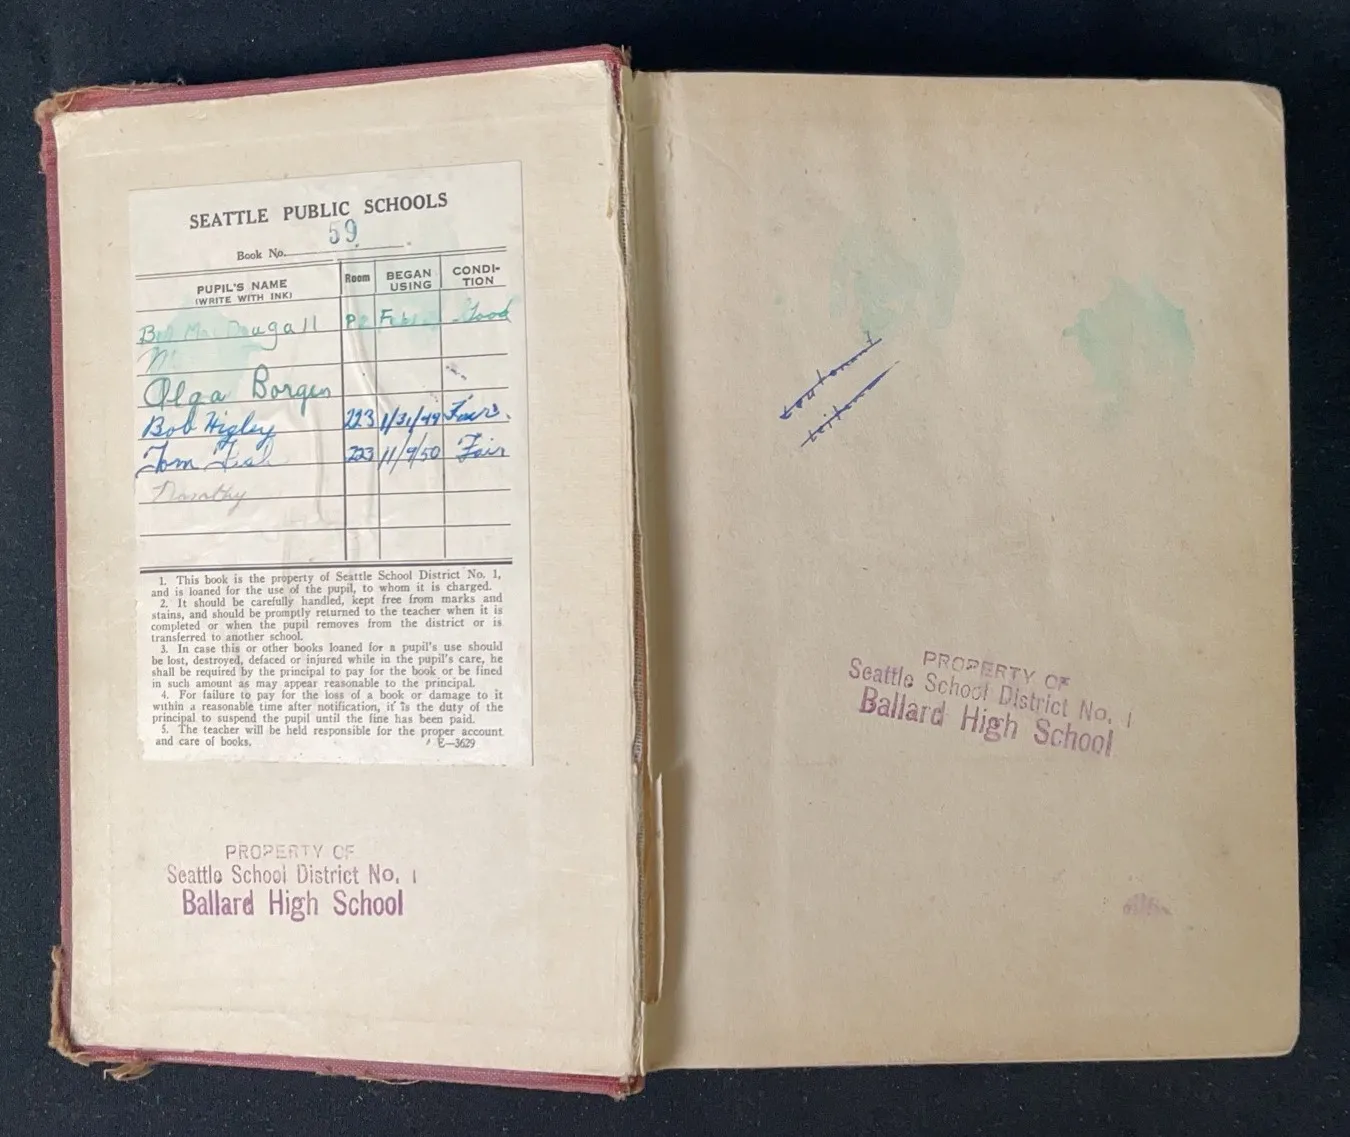 SEATTLE PUBLIC SCHOOLS
Book No. 59
PUPIL'S NAME (WRITE WITH INK) Room BEGAN USING CONDI-TION
MacDougall Good
M
Olga Borgen
Bob Higley 223 1/31/49 Fair.
Tom 223 11/9/50 Fair
Dorothy
1. This book is the property of Seattle School District No. 1,
and is loaned for the use of the pupil, to whom it is charged.
2. It should be carefully handled, kept free from marks and
stains, and should be promptly returned to the teacher when it is
completed or when the pupil removes from the district or is
transferred to another school.
3. In case this or other books loaned for a pupil's use should
be lost, destroyed, defaced or injured while in the pupil's care, he
shall be required by the principal to pay for the book or be fined
in such amount as may appear reasonable to the principal.
4. For failure to pay for the loss of a book or damage to it
within a reasonable time after notification, it is the duty of the
principal to suspend the pupil until the fine has been paid.
5. The teacher will be held responsible for the proper account
and care of books. E—3629
PROPERTY OF
Seattle School District No. 1
Ballard High School
PROPERTY OF
Seattle School District No. 1
Ballard High School